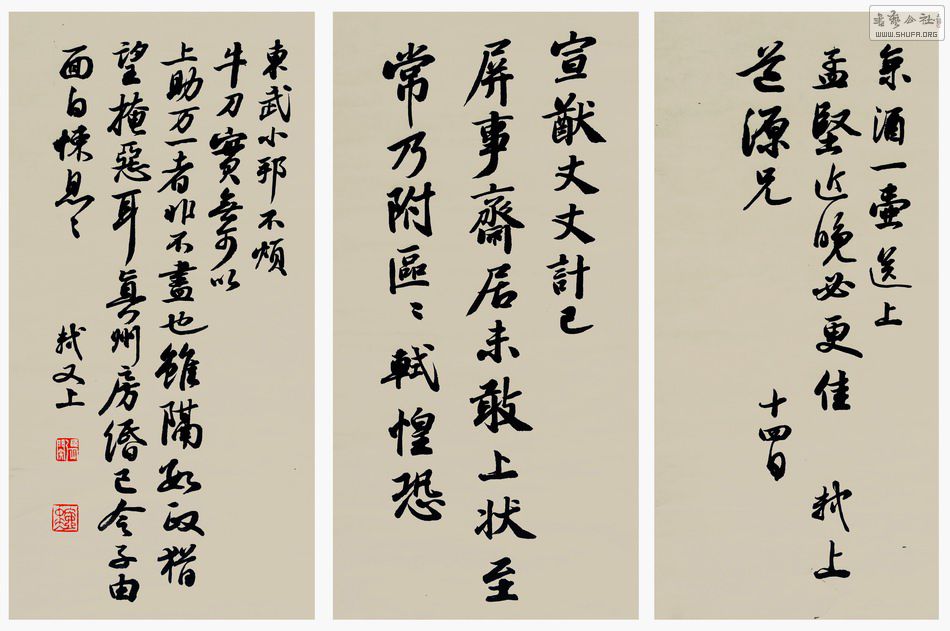 酒一壺送上
孟堅近晚必更佳 軾上
道源兄
十四日
宣猷丈丈計已
屏事齋居未敢上状至
常乃附區〻軾惶恐
東武小邦不煩
牛刀實無可以
上助万一者非不盡也雖隔數政猶
望掩惡耳真州房緡已令子由
面白悚息〻
軾又上
書藝公社
WWW.SHUFA.ORG